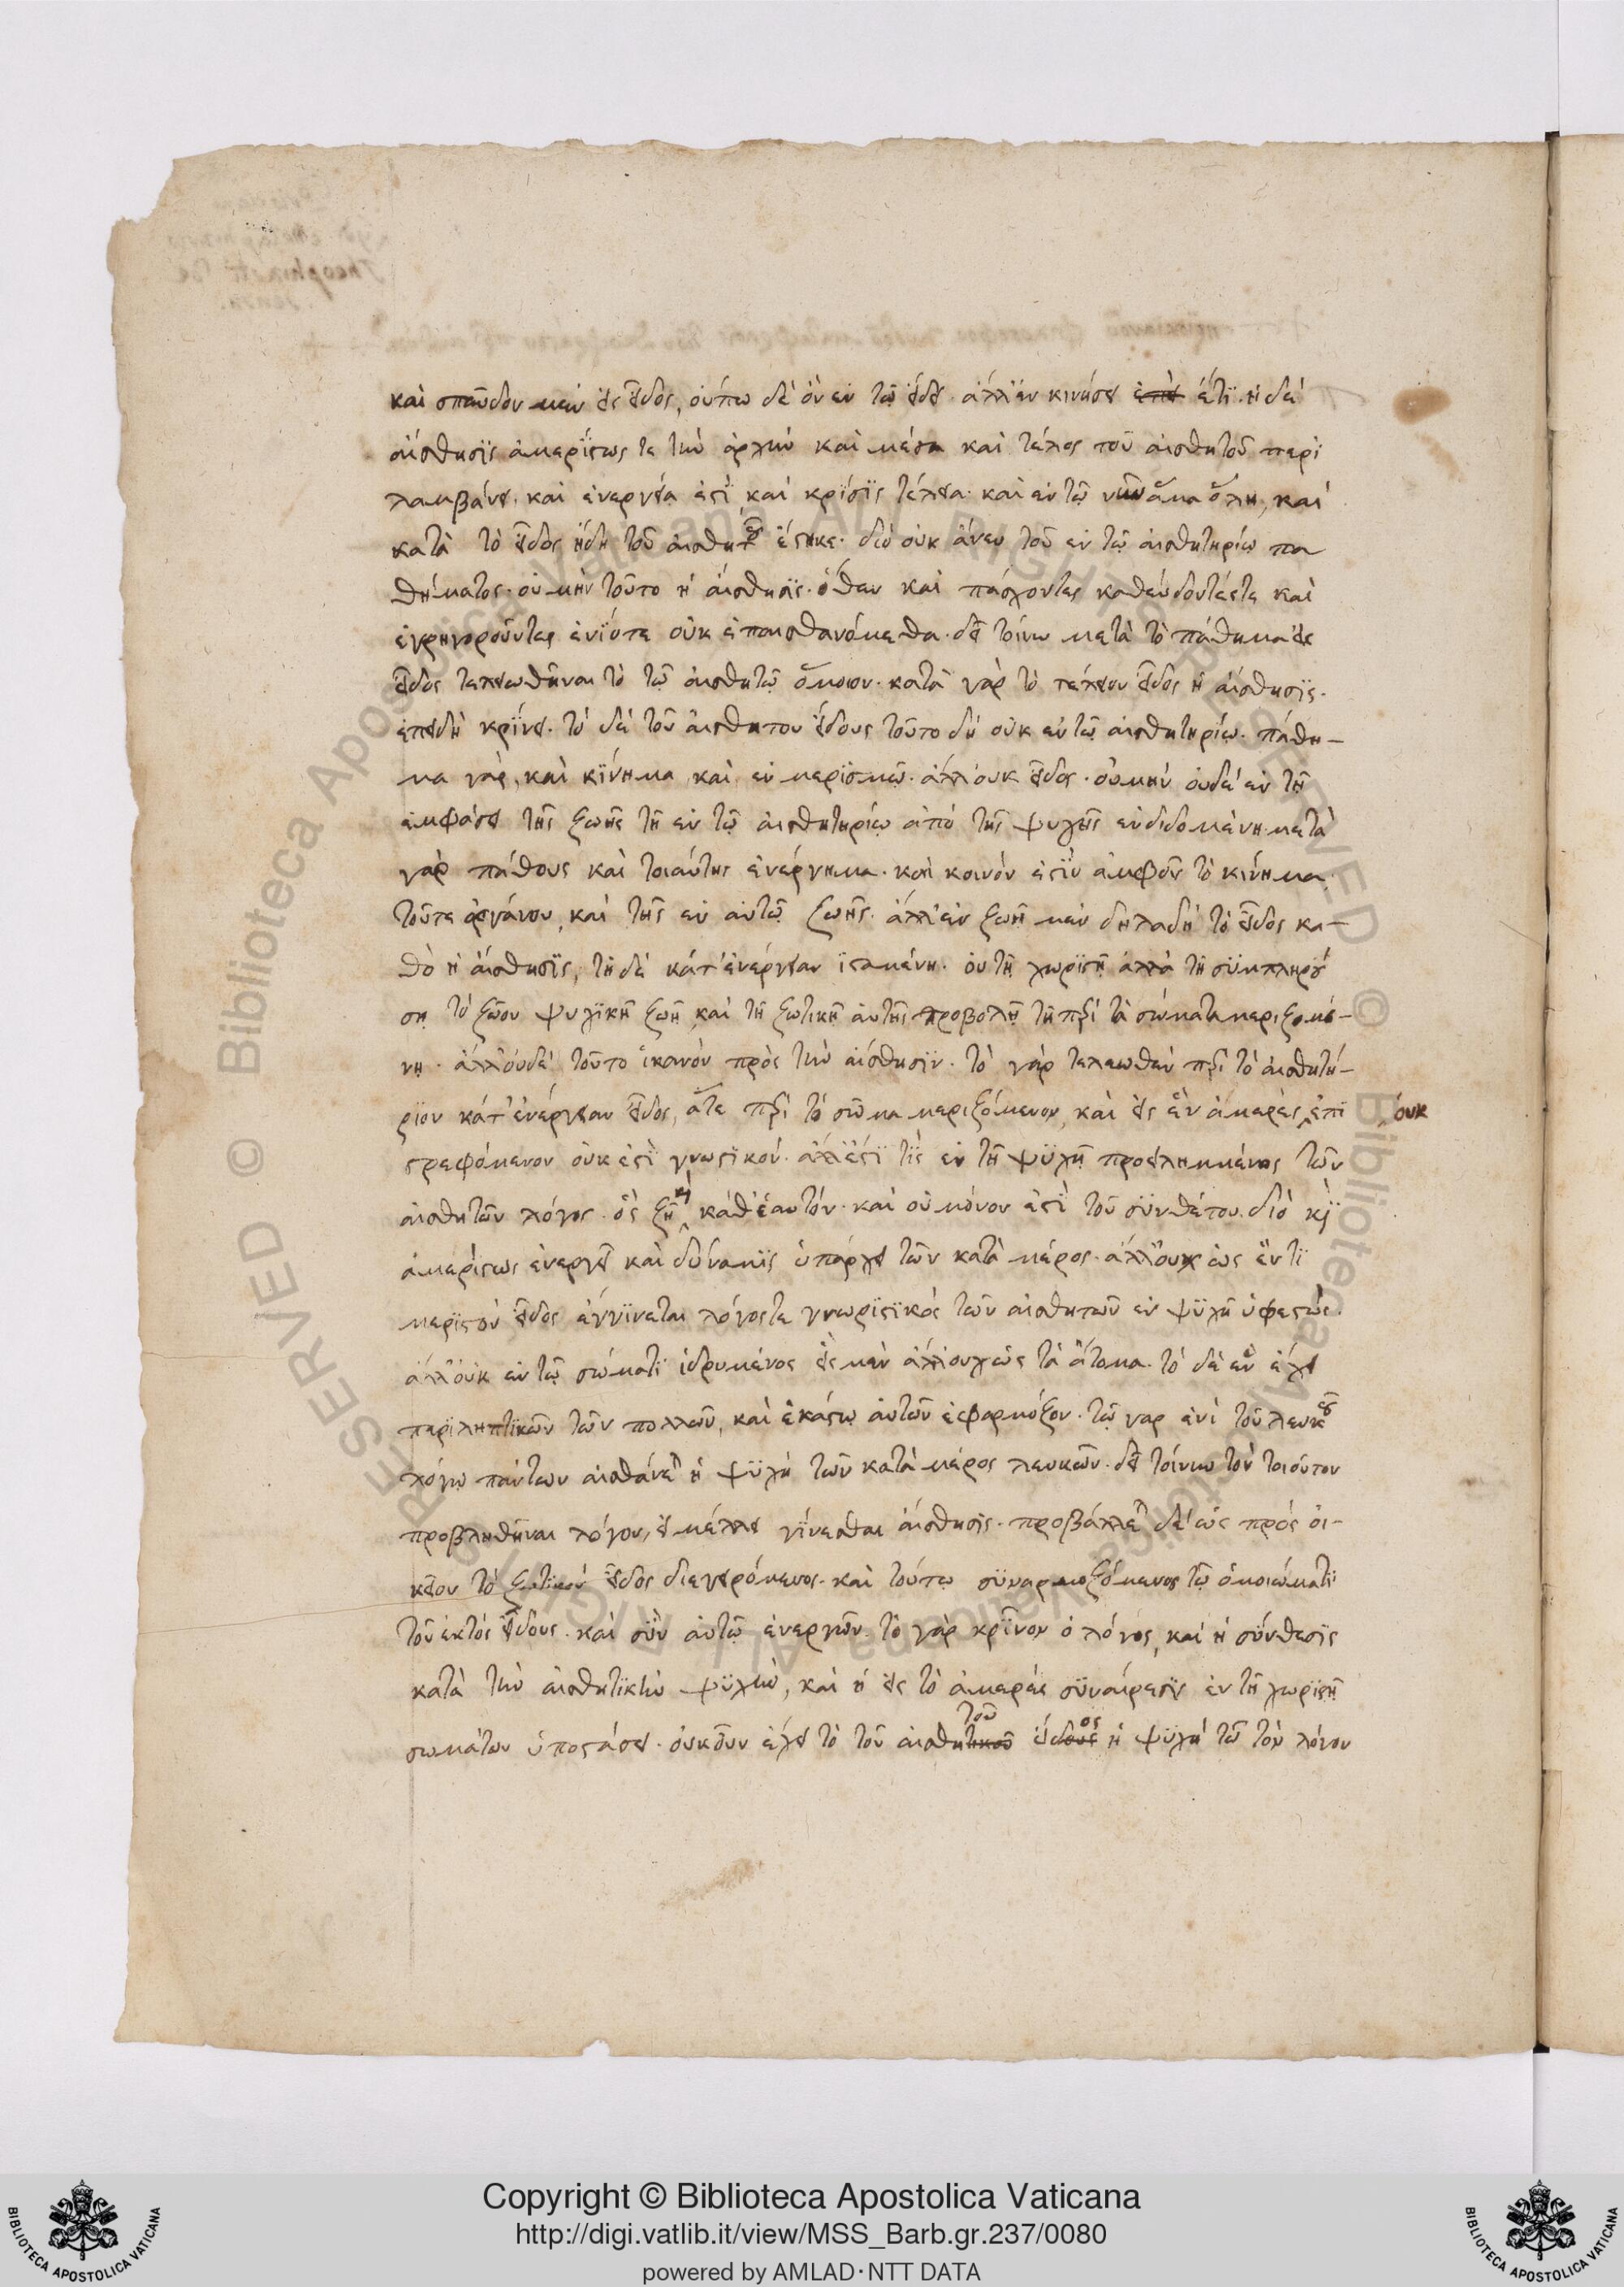 καὶ σπεῦδον μὲν εἰς εἶδος, οὔπω δὲ ὂν ἐν τῷ εἴδει. ἀλλ' ἐν κινήσει ἔτι. ἡ δὲ
αἴσθησϊς ἀμερίστως τε τὴν ἀρχὴν καὶ μέσα καὶ τέλος τοῦ αἰσθητοῦ περϊ
λαμβάνει. καὶ ἐνεργεία ἐστὶ καὶ κρίσϊς τέλεια. καὶ ἐν τῷ νῦν ἅμα ὅλη, καὶ
κατὰ τὸ εἶδος ἤδη τοῦ αἰσθητοῦ ἕστηκε. διὸ οὐκ ἄνευ τοῦ ἐν τῷ αἰσθητηρίῳ πα
θήματος. οὐ μὴν τοῦτο ἡ αἴσθησϊς. ὅθεν καὶ πάσχοντες καθεύδοντές τε καὶ
ἐγρηγοροῦντες ἐνίοτε οὐκ ἐπαισθανόμεθα. δεῖ τοίνυν μετὰ τὸ πάθημα εἰς
εἶδος τελειωθῆναι τὸ τῷ αἰσθητῷ ὅμοιον. κατὰ γὰρ τὸ τέλειον εἶδος ἡ αἴσθησϊς.
ἐπειδὴ κρίνει. τὸ δὲ τοῦ αἰσθητου εἴδους τοῦτο δὴ οὐκ ἐν τῷ αἰσθητηρίῳ. πάθη-
μα γὰρ καὶ κίνημα καὶ ἐν μερϊσμῷ. ἀλλ' οὐκ εἶδος. οὐ μὴν οὐδὲ ἐν τῇ
ἐμφάσει τῆς ζωῆς τῇ ἐν τῷ αἰσθητηρίῳ ἀπὸ τῆς ψυχῆς ἐνδιδομένῃ. μετὰ
γὰρ πάθους καὶ τοιαύτης ἐνέργημα. καὶ κοινόν ἐστὶν ἀμφοῖν τὸ κίνημα.
τοῦ τε ὀργάνου, καὶ τῆς ἐν αὐτῷ ζωῆς. ἀλλ' ἐν ζωῇ μὲν δηλαδὴ τὸ εἶδος κα-
θὸ ἡ αἴσθησϊς, τῇ δὲ κατ' ἐνέργειαν ἱσταμένῃ. οὐ τῇ χωρϊστῇ ἀλλὰ τῇ σϋμπληρού
σῃ τὸ ζῶον ψυχϊκῇ ζωῇ καὶ τῇ ζωτικῇ αὐτῆς προβολῇ τῇ περὶ τὰ σώματα μεριζομέ-
νῃ. ἀλλ' οὐδὲ τοῦτο ἱκανὸν πρὸς τὴν αἴσθησϊν. τὸ γὰρ τελειωθὲν περὶ τὸ αἰσθητή-
ρϊον κατ' ἐνέργειαν εἶδος, ἅτε περὶ τὸ σῶμα μεριζόμενον, καὶ εἰς ἓν ἀμερὲς οὐκ ἐπϊ
στρεφόμενον οὐκ ἐστὶ γνωστϊκόν. ἀλλ' ἔστϊ τὶς ἐν τῇ ψϋχῇ προειλημμένος τῶν
αἰσθητῶν λόγος. ὃς ζῇ καὶ καθ' ἑαυτόν. καὶ οὐ μόνον ἐστὶ τοῦ σϋνθέτου. διὸ καὶ
ἀμερίστως ἐνεργεῖ καὶ δύναμϊς ὑπάρχει τῶν κατὰ μέρος. ἀλλ' οὐχ ὡς ἕν τϊ
μερϊστὸν εἶδος ἐγγίνεται λόγος τε γνωρϊστϊκὸς τῶν αἰσθητῶν ἐν ψϋχῇ ὑφεστώς.
ἀλλ' οὐκ ἐν τῷ σώματϊ ἱδρυμένος εἷς μὲν ἀλλ' οὐχ ὡς τὰ ἄτομα. τὸ δὲ ἓν ἔχει
περϊληπτϊκῶν τῶν πολλῶν, καὶ ἑκάστῳ αὐτῶν ἐφαρμόζον. τῷ γαρ ἑνὶ τοῦ λευκοῦ
λόγῳ πάντων αἰσθάνεται ἡ ψϋχὴ τῶν κατὰ μέρος λευκῶν. δεῖ τοίνυν τὸν τοιοῦτον
προβληθῆναι λόγον, εἰ μέλλει γίνεσθαι αἴσθησϊς. προβάλλεται δὲ ὡς πρὸς οἰ-
κεῖον τὸ ζωτϊκὸν εἶδος διεγειρόμενος. καὶ τούτῳ σϋναρμοζόμενος τῷ ὁμοιώματϊ
τοῦ ἐκτὸς εἴδους. καὶ σὺν αὐτῷ ἐνεργῶν. τὸ γὰρ κρῖνον ὁ λόγος, καὶ ἡ σύνθεσϊς
κατὰ τὴν αἰσθητϊκὴν ψϋχὴν, καὶ ἡ εἰς τὸ ἀμερὲς σϋναίρεσϊς ἐν τῇ χωρϊστῇ
σωμάτων ὑποστάσει. οὐκοῦν ἔχει τὸ τοῦ αἰσθητοῦ εἶδος ἡ ψϋχὴ τῷ τὸν λόγον
Copyright © Biblioteca Apostolica Vaticana
http://digi.vatlib.it/view/MSS_Barb.gr.237/0080
powered by AMLAD·NTT DATA